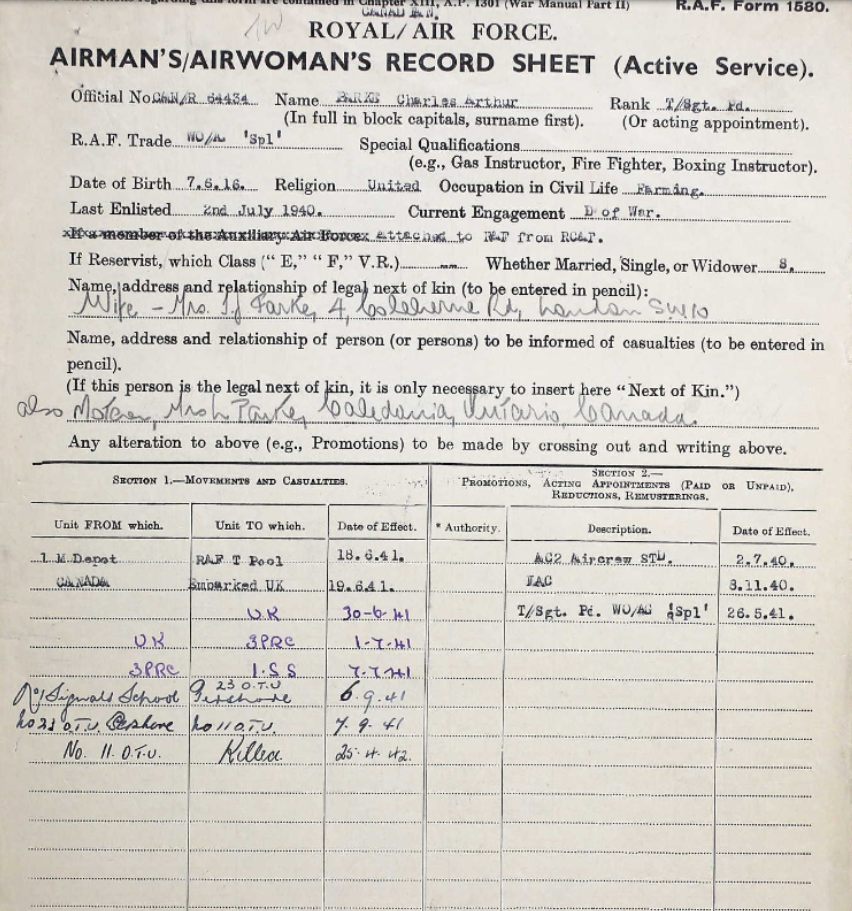 form are contained in Chapter XIII, A.P. 1301 (War Manual Part II) R.A.F. Form 1580.
CANADIAN.
ROYAL/AIR FORCE.
AIRMAN'S/AIRWOMAN'S RECORD SHEET (Active Service).
Official No. CAN/R 64434 Name PARKE Charles Arthur Rank T/Sgt. Pd.
(In full in block capitals, surname first). (Or acting appointment).
R.A.F. Trade WO/AG 'Spl' Special Qualifications
(e.g., Gas Instructor, Fire Fighter, Boxing Instructor).
Date of Birth 7.6.16. Religion United Occupation in Civil Life Farming.
Last Enlisted 2nd July 1940. Current Engagement D of War.
If a member of the Auxiliary Air Force attached to RAF from RCAF.
If Reservist, which Class ("E," "F," V.R.) Whether Married, Single, or Widower S.
Name, address and relationship of legal next of kin (to be entered in pencil):
Wife - Mrs. Parke, 4, Coleherne Rd, London SW10
Name, address and relationship of person (or persons) to be informed of casualties (to be entered in
pencil).
(If this person is the legal next of kin, it is only necessary to insert here "Next of Kin.")
also Mother, Mrs L Parke, Caledonia, Ontario, Canada.
Any alteration to above (e.g., Promotions) to be made by crossing out and writing above.
SECTION 1.—MOVEMENTS AND CASUALTIES. SECTION 2.—
PROMOTIONS, ACTING APPOINTMENTS (PAID OR UNPAID),
REDUCTIONS, REMUSTERINGS.
Unit FROM which. Unit TO which. Date of Effect. * Authority. Description. Date of Effect.
1 M.Depot RAF T Pool 18.6.41. AC2 Aircrew STD. 2.7.40.
CANADA Embarked UK 19.6.41. LAC 8.11.40.
UK 30-6-41 T/Sgt. Pd. WO/AG 'Spl' 26.5.41.
UK 3PRC 1-7-41
3PRC 1.S S 7-7-41
No 1 Signals School 23 O.T.U Pershore 6.9.41
No 23 O.T.U. Pershore No 11 O.T.U. 7.9.41
No. 11 O.T.U. Killed. 25.4.42.